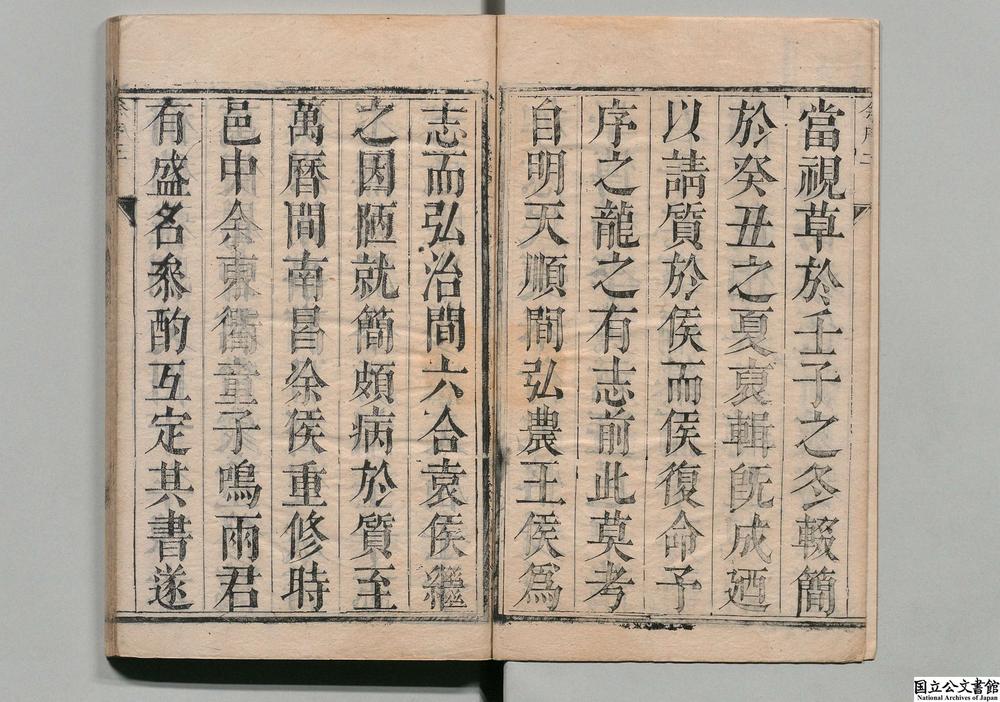 當視草於壬子之冬輟簡
於癸丑之夏裒輯既成廼
以請質於侯而侯復命予
序之龍之有志前此莫考
自明天順間弘農王侯爲
志而弘治間六合袁侯繼
之因陋就簡頗病於質至
萬曆間南昌涂侯重修時
邑中余東衢童子鳴兩君
有盛名叅酌互定其書遂
国立公文書館
National Archives of Japan